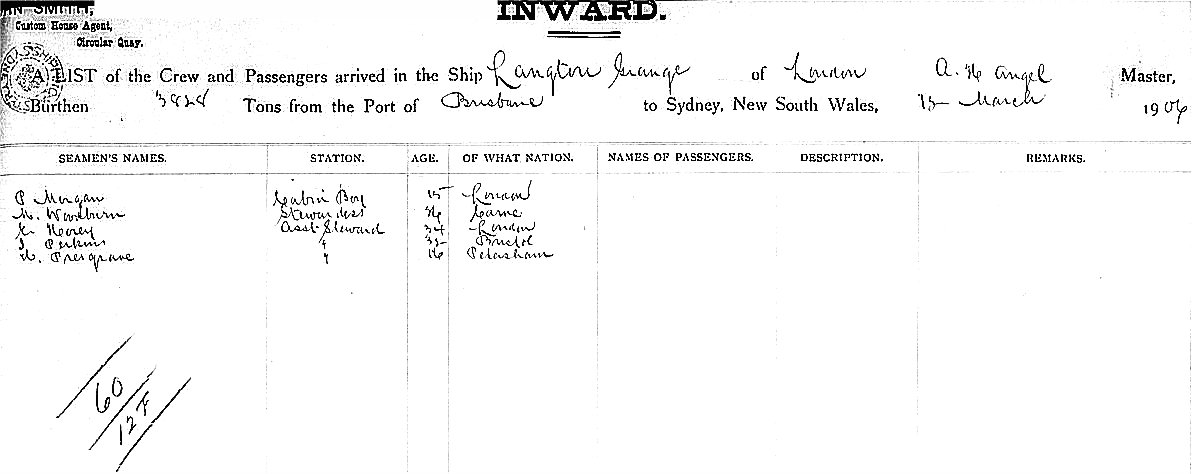 INWARD.
SMITH,
Custom House Agent,
Circular Quay.
A LIST of the Crew and Passengers arrived in the Ship Langton Grange of London A. H Angel Master,
Burthen 3828 Tons from the Port of Brisbane to Sydney, New South Wales, March 1906
SEAMEN'S NAMES. STATION. AGE. OF WHAT NATION. NAMES OF PASSENGERS. DESCRIPTION. REMARKS.
P Morgan Cabin Boy 15 London
M. Woodburn Stewardess 36 Larne
Asst Steward 34 London
Perkins " Bristol
Presgrave " 16 Petersham
60
127